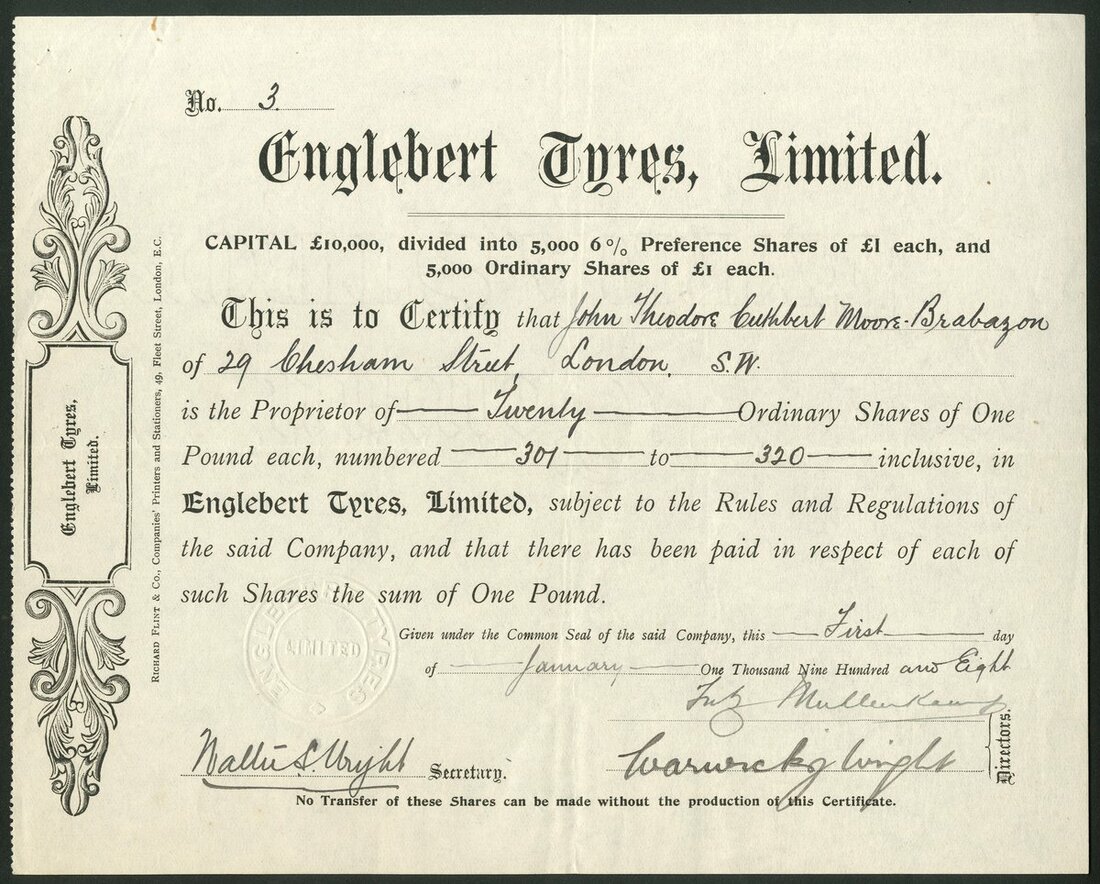 No. 3.
Englebert Tyres, Limited.
CAPITAL £10,000, divided into 5,000 6% Preference Shares of £1 each, and
5,000 Ordinary Shares of £1 each.
This is to Certify that John Theodore Cuthbert Moore-Brabazon
of 29 Chesham Street, London, S.W.
is the Proprietor of Twenty Ordinary Shares of One
Pound each, numbered 301 to 320 inclusive, in
Englebert Tyres, Limited, subject to the Rules and Regulations of
the said Company, and that there has been paid in respect of each of
such Shares the sum of One Pound.
Given under the Common Seal of the said Company, this First day
of January One Thousand Nine Hundred and Eight
Mullenkamp
Walter S. Wright Secretary.
Warwick J Wright
Directors.
No Transfer of these Shares can be made without the production of this Certificate.
ENGLEBERT TYRES
LIMITED
Englebert Tyres,
Limited.
RICHARD FLINT & CO., Companies' Printers and Stationers, 49, Fleet Street, London, E.C.